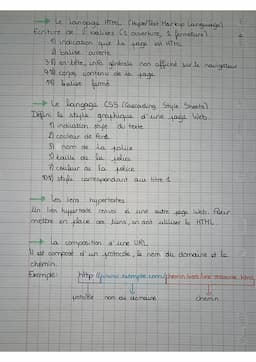 → Le langage HTML (HyperText Markup Language)
Ecriture de 2 balises (1 ouverture, 1 fermeture)
1) indication que la page est HTML
2) balise ouverte
3) en-tête, info générale non affiché sur le navigateur
corps, contenu de la page
balise fermé
→ Le langage CSS (Cascading Style Sheets)
Défini le style graphique d'une page Web.
1) indication style du texte
2) couleur de fond
3) nom de la police
5) taille de la police
7) couleur de la police
style correspondant au titre 1
→ Les liens hypertextes
Un lien hypertexte renvoi à une autre page Web. Pour
mettre en place ces liens, on doit utiliser le HTML
→ La composition d'une URL
Il est composé d'un protocole, le nom du domaine et le
chemin.
Exemple: http://www.exemple.com/chemin
protocole nom du domaine chemin